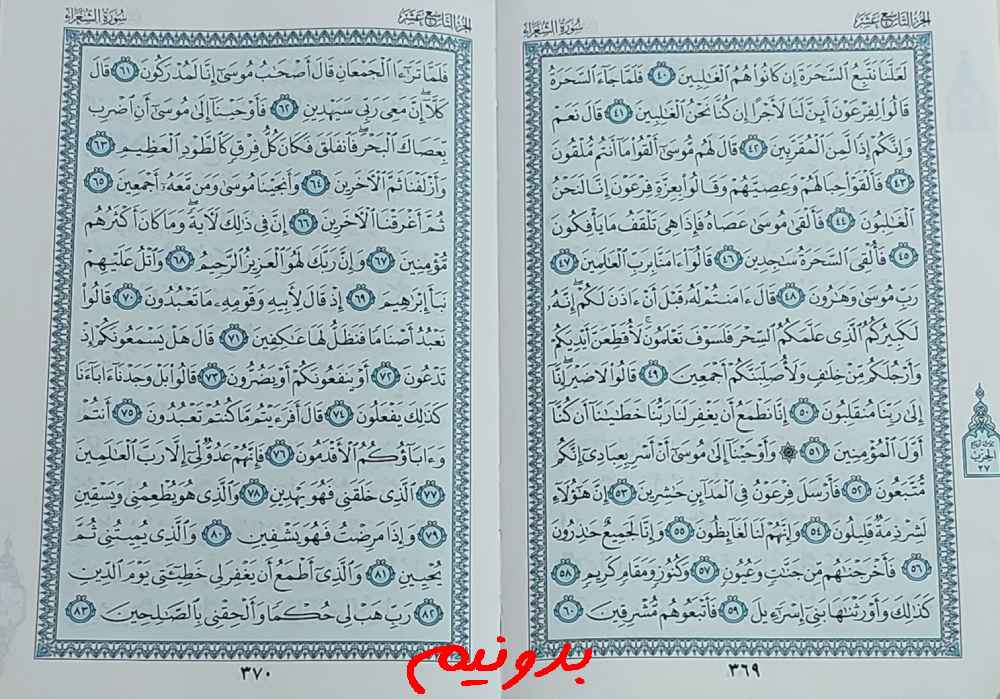 الجزء التاسع عشر
سورة الشعراء
لَعَلَّنَا نَتَّبِعُ السَّحَرَةَ إِن كَانُوا هُمُ الْغَالِبِينَ ٤٠ فَلَمَّا جَاءَ السَّحَرَةُ
قَالُوا لِفِرْعَوْنَ أَئِنَّ لَنَا لَأَجْرًا إِن كُنَّا نَحْنُ الْغَالِبِينَ ٤١ قَالَ نَعَمْ
وَإِنَّكُمْ إِذًا لَّمِنَ الْمُقَرَّبِينَ ٤٢ قَالَ لَهُم مُّوسَىٰ أَلْقُوا مَا أَنتُم مُّلْقُونَ
٤٣ فَأَلْقَوْا حِبَالَهُمْ وَعِصِيَّهُمْ وَقَالُوا بِعِزَّةِ فِرْعَوْنَ إِنَّا لَنَحْنُ
الْغَالِبُونَ ٤٤ فَأَلْقَىٰ مُوسَىٰ عَصَاهُ فَإِذَا هِيَ تَلْقَفُ مَا يَأْفِكُونَ
٤٥ فَأُلْقِيَ السَّحَرَةُ سَاجِدِينَ ٤٦ قَالُوا ءَامَنَّا بِرَبِّ الْعَالَمِينَ ٤٧
رَبِّ مُوسَىٰ وَهَارُونَ ٤٨ قَالَ ءَامَنتُمْ لَهُ قَبْلَ أَنْ ءَاذَنَ لَكُمْ إِنَّهُ
لَكَبِيرُكُمُ الَّذِي عَلَّمَكُمُ السِّحْرَ فَلَسَوْفَ تَعْلَمُونَ لَأُقَطِّعَنَّ أَيْدِيَكُمْ
وَأَرْجُلَكُم مِّنْ خِلَافٍ وَلَأُصَلِّبَنَّكُمْ أَجْمَعِينَ ٤٩ قَالُوا لَا ضَيْرَ إِنَّا
إِلَىٰ رَبِّنَا مُنقَلِبُونَ ٥٠ إِنَّا نَطْمَعُ أَن يَغْفِرَ لَنَا رَبُّنَا خَطَايَانَا أَن كُنَّا
أَوَّلَ الْمُؤْمِنِينَ ٥١ ۞ وَأَوْحَيْنَا إِلَىٰ مُوسَىٰ أَنْ أَسْرِ بِعِبَادِي إِنَّكُم
مُّتَّبَعُونَ ٥٢ فَأَرْسَلَ فِرْعَوْنُ فِي الْمَدَائِنِ حَاشِرِينَ ٥٣ إِنَّ هَٰؤُلَاءِ
لَشِرْذِمَةٌ قَلِيلُونَ ٥٤ وَإِنَّهُمْ لَنَا لَغَائِظُونَ ٥٥ وَإِنَّا لَجَمِيعٌ حَاذِرُونَ
٥٦ فَأَخْرَجْنَاهُم مِّن جَنَّاتٍ وَعُيُونٍ ٥٧ وَكُنُوزٍ وَمَقَامٍ كَرِيمٍ ٥٨
كَذَٰلِكَ وَأَوْرَثْنَاهَا بَنِي إِسْرَاءِيلَ ٥٩ فَأَتْبَعُوهُم مُّشْرِقِينَ ٦٠
٣٦٩
الحزب
٣٧
الجزء التاسع عشر
سورة الشعراء
فَلَمَّا تَرَاءَا الْجَمْعَانِ قَالَ أَصْحَابُ مُوسَىٰ إِنَّا لَمُدْرَكُونَ ٦١ قَالَ
كَلَّا إِنَّ مَعِيَ رَبِّي سَيَهْدِينِ ٦٢ فَأَوْحَيْنَا إِلَىٰ مُوسَىٰ أَنِ اضْرِب
بِّعَصَاكَ الْبَحْرَ فَانفَلَقَ فَكَانَ كُلُّ فِرْقٍ كَالطَّوْدِ الْعَظِيمِ ٦٣
وَأَزْلَفْنَا ثَمَّ الْآخَرِينَ ٦٤ وَأَنجَيْنَا مُوسَىٰ وَمَن مَّعَهُ أَجْمَعِينَ ٦٥
ثُمَّ أَغْرَقْنَا الْآخَرِينَ ٦٦ إِنَّ فِي ذَٰلِكَ لَآيَةً وَمَا كَانَ أَكْثَرُهُم
مُّؤْمِنِينَ ٦٧ وَإِنَّ رَبَّكَ لَهُوَ الْعَزِيزُ الرَّحِيمُ ٦٨ وَاتْلُ عَلَيْهِمْ
نَبَأَ إِبْرَاهِيمَ ٦٩ إِذْ قَالَ لِأَبِيهِ وَقَوْمِهِ مَا تَعْبُدُونَ ٧٠ قَالُوا
نَعْبُدُ أَصْنَامًا فَنَظَلُّ لَهَا عَاكِفِينَ ٧١ قَالَ هَلْ يَسْمَعُونَكُمْ إِذْ
تَدْعُونَ ٧٢ أَوْ يَنفَعُونَكُمْ أَوْ يَضُرُّونَ ٧٣ قَالُوا بَلْ وَجَدْنَا ءَابَاءَنَا
كَذَٰلِكَ يَفْعَلُونَ ٧٤ قَالَ أَفَرَءَيْتُم مَّا كُنتُمْ تَعْبُدُونَ ٧٥ أَنتُمْ
وَءَابَاؤُكُمُ الْأَقْدَمُونَ ٧٦ فَإِنَّهُمْ عَدُوٌّ لِّي إِلَّا رَبَّ الْعَالَمِينَ
٧٧ الَّذِي خَلَقَنِي فَهُوَ يَهْدِينِ ٧٨ وَالَّذِي هُوَ يُطْعِمُنِي وَيَسْقِينِ
٧٩ وَإِذَا مَرِضْتُ فَهُوَ يَشْفِينِ ٨٠ وَالَّذِي يُمِيتُنِي ثُمَّ
يُحْيِينِ ٨١ وَالَّذِي أَطْمَعُ أَن يَغْفِرَ لِي خَطِيئَتِي يَوْمَ الدِّينِ
٨٢ رَبِّ هَبْ لِي حُكْمًا وَأَلْحِقْنِي بِالصَّالِحِينَ ٨٣
٣٧٠
بدونیم